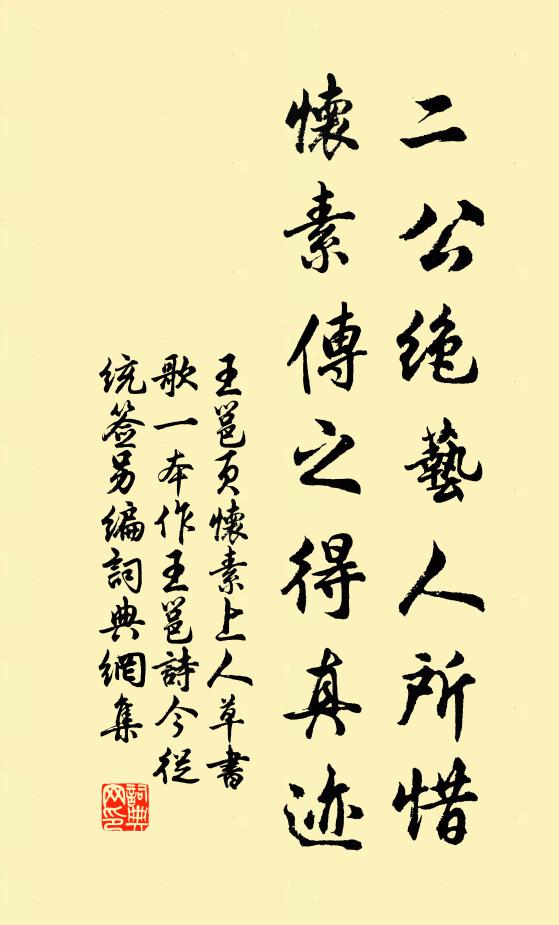 二公绝藝人所惜
懷素傳之得真迹
王邕页懷素上人草書
歌一本作王邕詩今從
统签另编詞典網集
詞典
网印